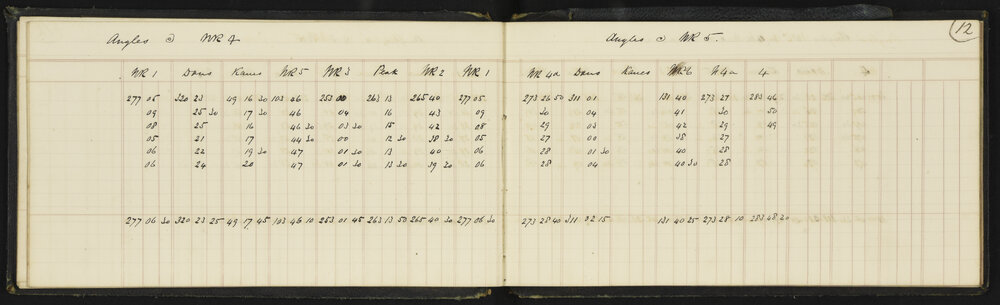 12
Angles @ WR 4
WR 1 Dans Kanes WR 5 WR 3 Peak WR 2 WR 1
277 05 320 23 49 16 30 103 46 253 00 263 13 265 40 277 05
09 25 30 17 30 46 04 16 43 09
08 25 16 46 30 03 30 15 42 08
05 21 17 44 30 00 12 30 38 30 05
06 22 19 30 47 01 30 13 40 06
06 24 20 47 01 30 13 30 39 30 06
277 06 30 320 23 25 49 17 45 103 46 10 253 01 45 263 13 50 265 40 30 277 06 30
Angles @ WR 5.
WR 4a Dans Kanes 6 W4a 4
273 26 50 311 01 131 40 273 27 283 46
30 04 41 30 50
29 03 42 29 49
27 00 38 27
28 01 30 40 28
28 04 40 30 28
273 28 40 311 02 15 131 40 25 273 28 10 283 48 20